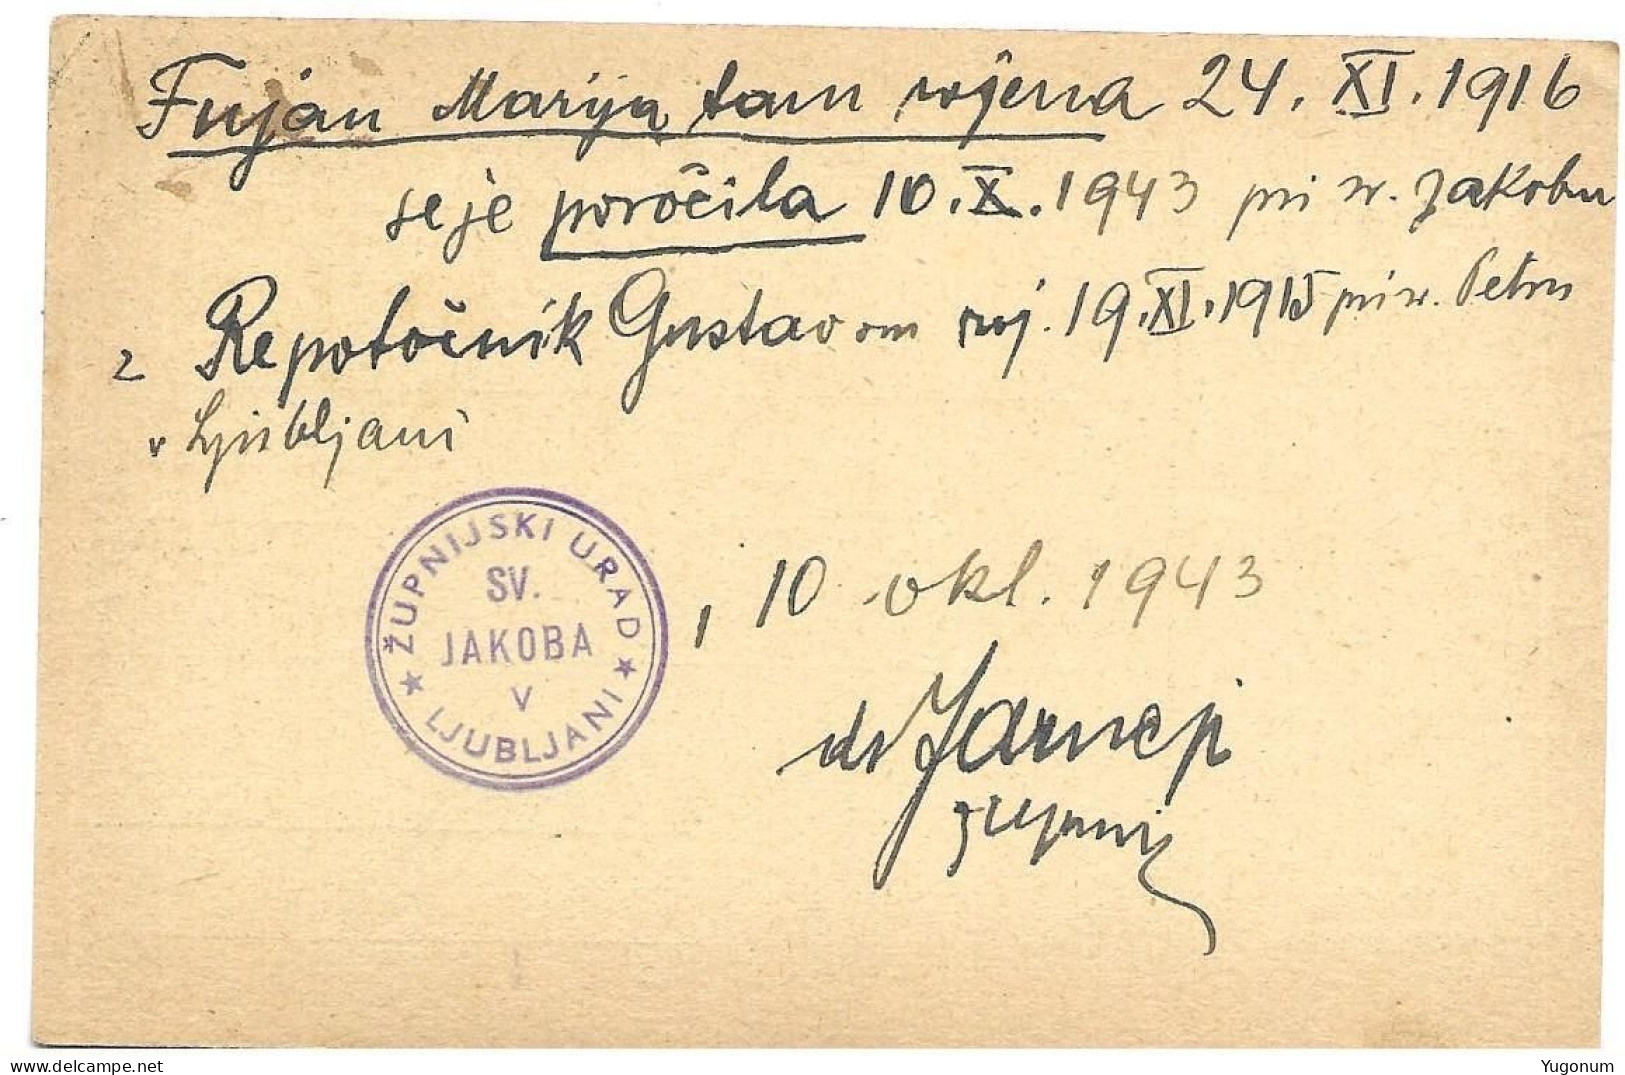 Fujan Marija tam rojena 24. XI. 1916
se je poročila 10. X. 1943 pri sv. Jakobu
z Repotočnik Gustavom roj. 19. XI. 1915 pri sv. Petru
v Ljubljani
ŽUPNIJSKI URAD
SV.
JAKOBA
V
LJUBLJANI
, 10 okt. 1943
dr Jarnej
župnik
Yugonum